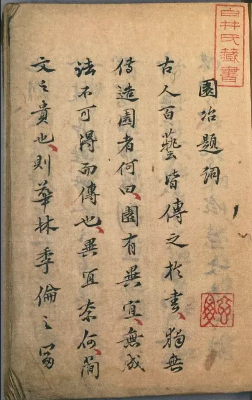 白井氏藏書
園冶題詞
古人百藝皆傳之於書獨無
傳造園者何曰園有異宜無成
法不可得而傳也異宜奈何簡
文之貴也則華林季倫之富